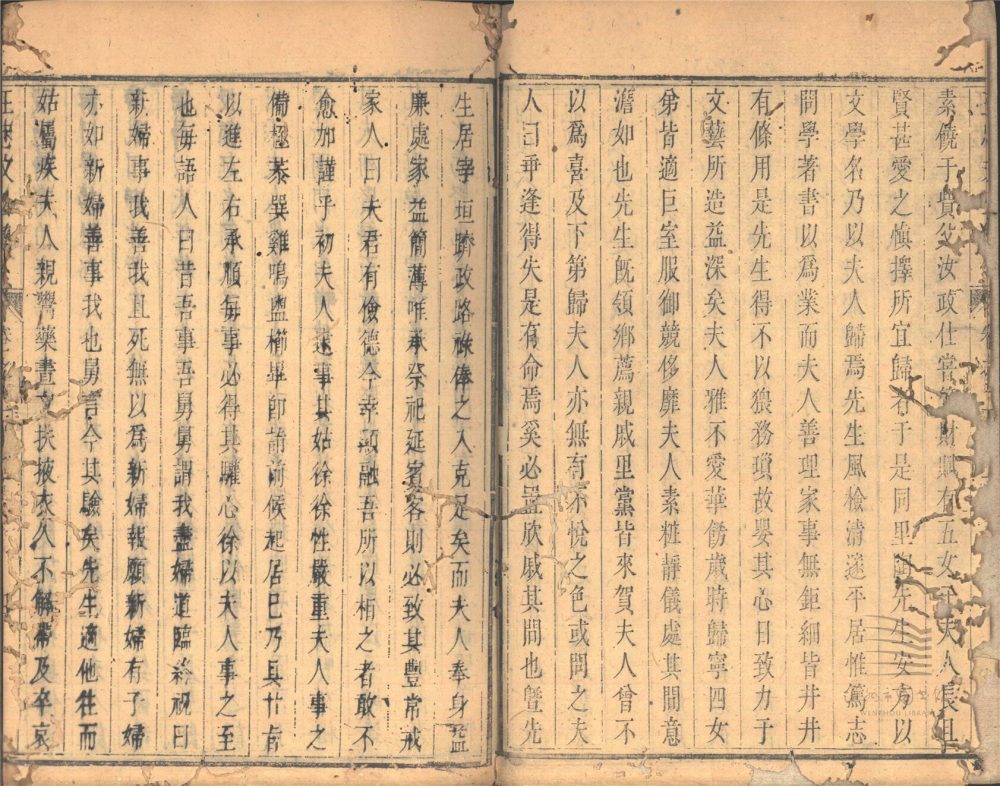 素饒于貲父汝政仕嘗財賦有五女子夫人長且
賢甚愛之愼擇所宜歸者于是同里先生安方以
文學名乃以夫人歸焉先生風檢清邃平居惟篤志
問學著書以爲業而夫人善理家事無鉅細皆井井
有條用是先生得不以猥務瑣故嬰其心日致力于
文藝所造益深矣夫人雅不愛華餙歲時歸寧四女
弟皆適巨室服御競侈靡夫人素粧靜儀處其間意
澹如也先生旣領鄉薦親戚里黨皆來賀夫人曾不
以爲喜及下第歸夫人亦無有不悅之色或問之夫
人曰乖逢得失是有命焉奚必置欣戚其間也曁先
生居宰垣躋政路祿俸之入克足矣而夫人奉身益
廉處家益簡薄唯承祭祀延賓客則必致其豐常戒
家人曰夫君有儉德今幸顯融吾所以相之者敢不
愈加謹乎初夫人逮事其姑徐徐性嚴重夫人事之
備極恭巽雞鳴盥櫛畢卽詣前候起居已乃具
以進左右承順每事必得其驩心徐以夫人事之至
也每語人曰昔吾事吾舅舅謂我盡婦道臨終祝曰
新婦事我善我且死無以爲新婦報願新婦有子婦
亦如新婦善事我也舅言今其驗矣先生適他往而
姑屬疾夫人親嘗藥晝夜扶掖衣久不解帶及卒哀